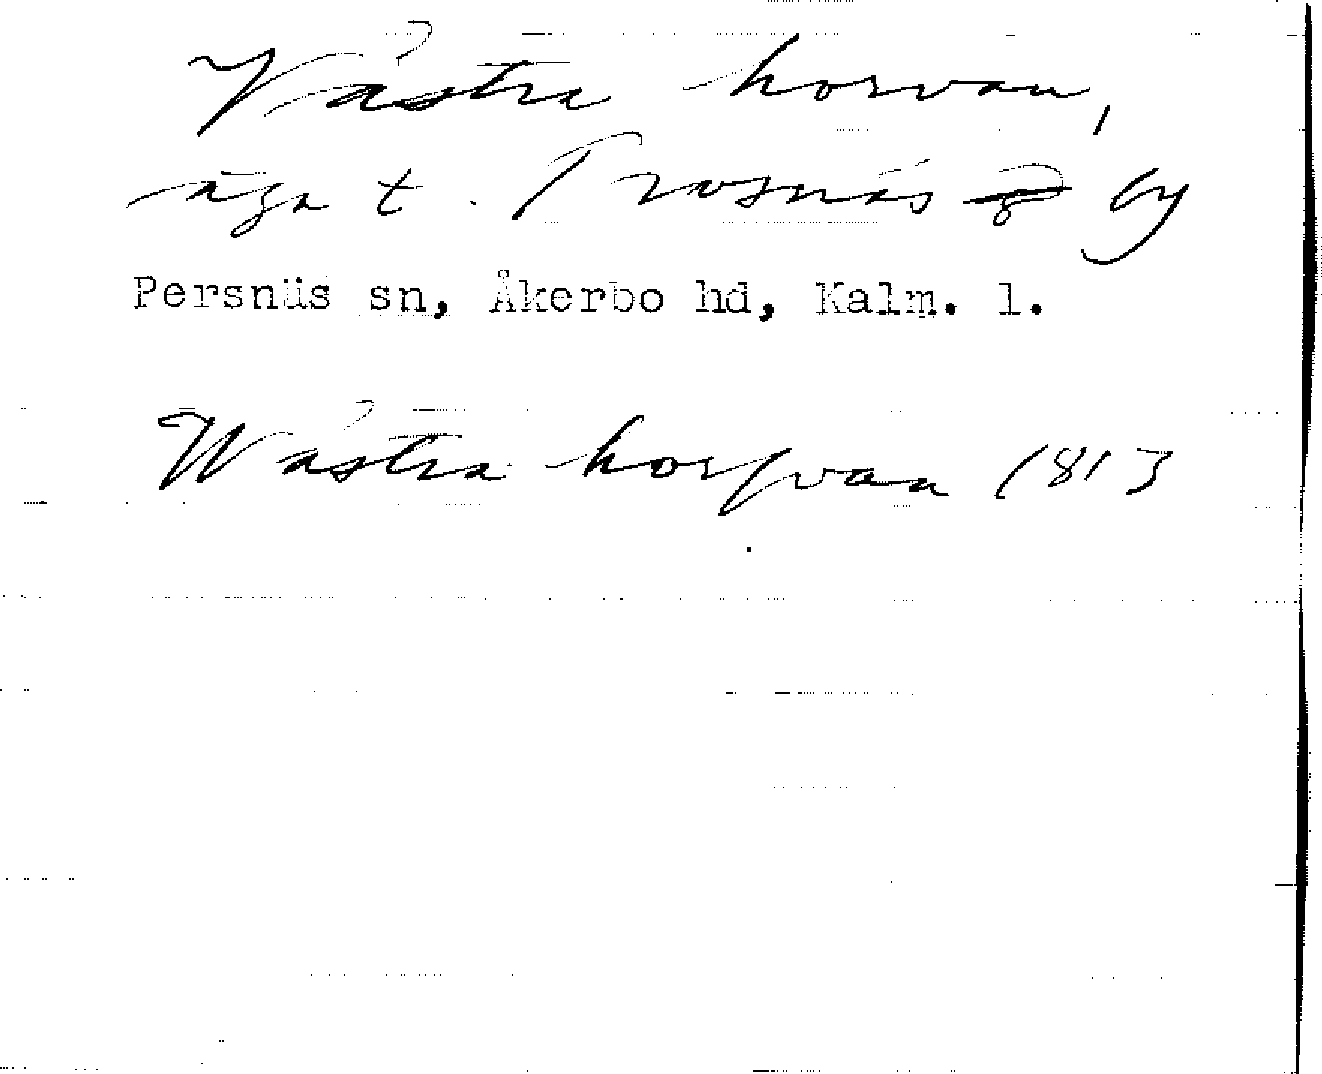 Västra horvan,
äga t. Trosnäs by
Persnäs sn, Åkerbo hd, Kalm. l.
Wästra horfvan 1813